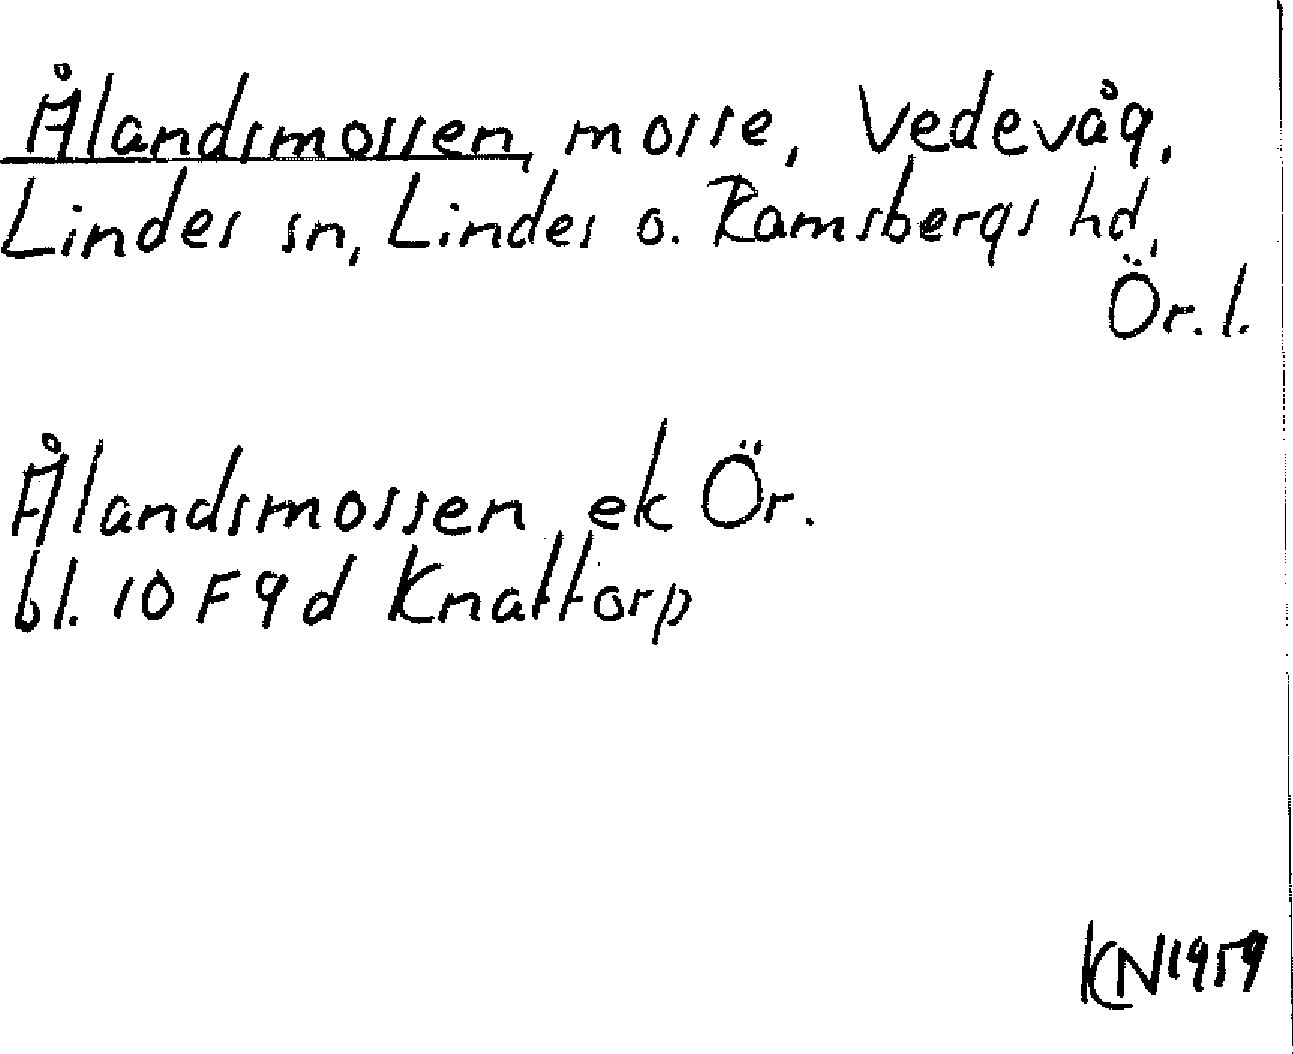 Ålandsmossen, mosse, Vedevåg,
Lindes sn, Lindes o. Ramsbergs hd,
Ör. l.
Ålandsmossen ek Ör.
bl. 10 F 9 d Knattorp
KN 1959